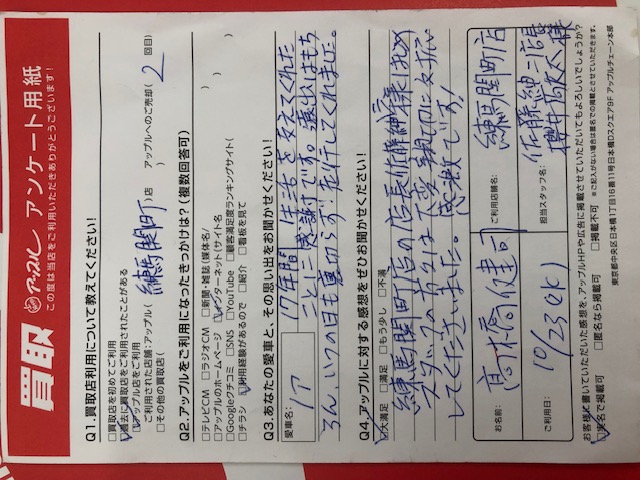 買取 アップル アンケート用紙
この度は当店をご利用いただきありがとうございます!
Q1.買取店利用について教えてください!
□買取店を初めてご利用
□過去に買取店をご利用されたことがある
□アップル店をご利用
ご利用された店舗:アップル( 練馬関町 )店 アップルへのご売却( 2 回目)
□その他の買取店( )
Q2.アップルをご利用になったきっかけは?(複数回答可)
□テレビCM □ラジオCM □新聞・雑誌(媒体名/ )
□アップルのホームページ □インターネット(サイト名 )
□Googleクチコミ □SNS □YouTube □顧客満足度ランキングサイト( )
□チラシ □利用経験があるので □紹介 □看板を見て
Q3.あなたの愛車と、その思い出をお聞かせください!
愛車名:
17年間 生活を支えてくれた
ことに 感謝です。遠出はもち
ろん、いつの日も裏切らず走行してくれました。
Q4.アップルに対する感想をぜひお聞かせください!
□大満足 □満足 □もう少し □不満
練馬関町店の店長佐藤紳様はじめ
スタッフの方々は大変親切に対応
してくださいました。 感激です!
お名前: 高橋健司
ご利用店舗名: 練馬関町店
ご利用日: 10/23(水)
担当スタッフ名: 佐藤紳店長
櫻井 様
お客様に書いていただいた感想を、アップルHPや広告に掲載させていただいてもよろしいでしょうか?
□実名で掲載可 □匿名なら掲載可 □掲載不可 ※ご記入がない場合は匿名での掲載とさせていただきます。
東京都中央区日本橋1丁目16番11号日本橋Dスクエア9F アップルチェーン本部